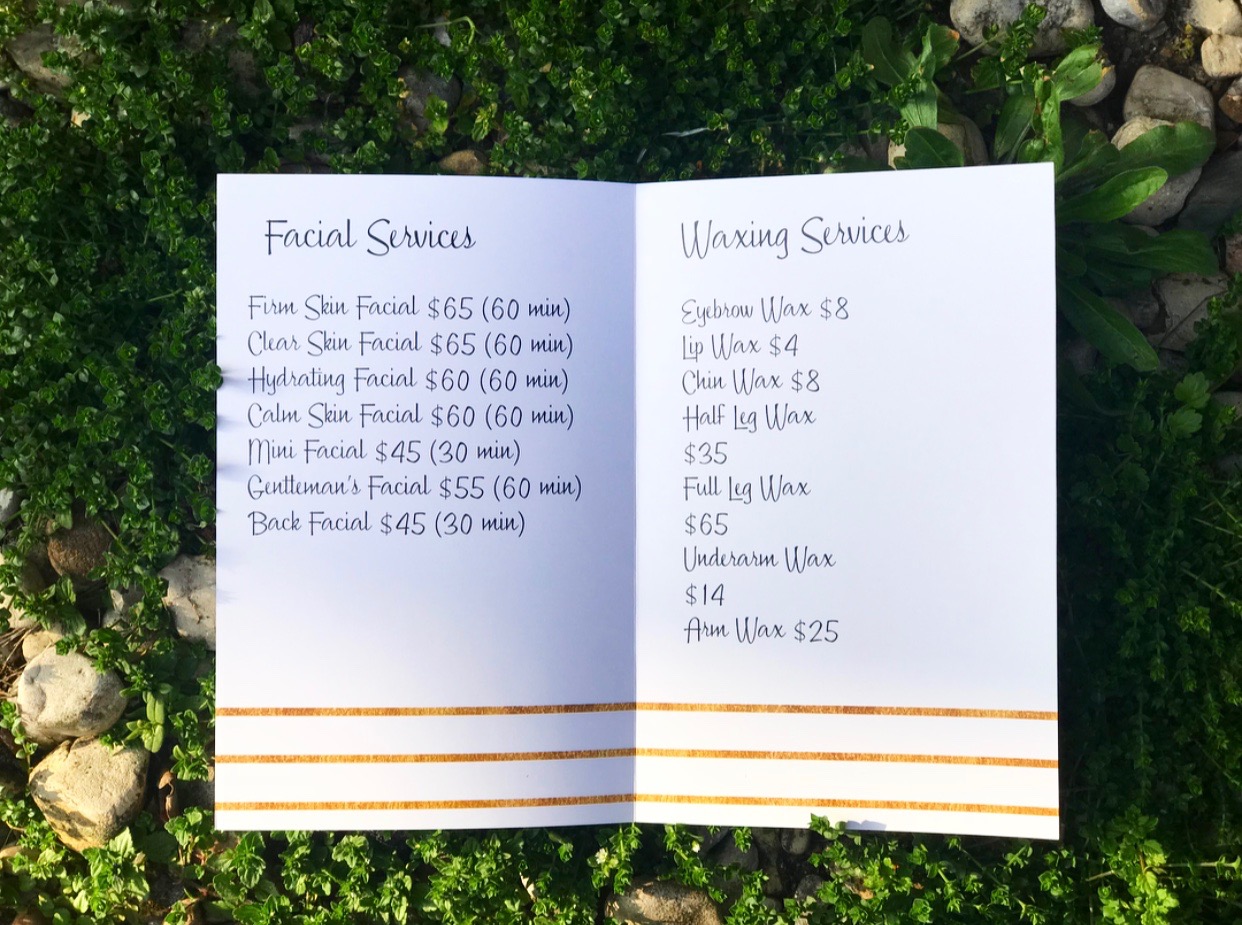 Facial Services
Firm Skin Facial $65 (60 min)
Clear Skin Facial $65 (60 min)
Hydrating Facial $60 (60 min)
Calm Skin Facial $60 (60 min)
Mini Facial $45 (30 min)
Gentleman's Facial $55 (60 min)
Back Facial $45 (30 min)
Waxing Services
Eyebrow Wax $8
Lip Wax $4
Chin Wax $8
Half Leg Wax
$35
Full Leg Wax
$65
Underarm Wax
$14
Arm Wax $25